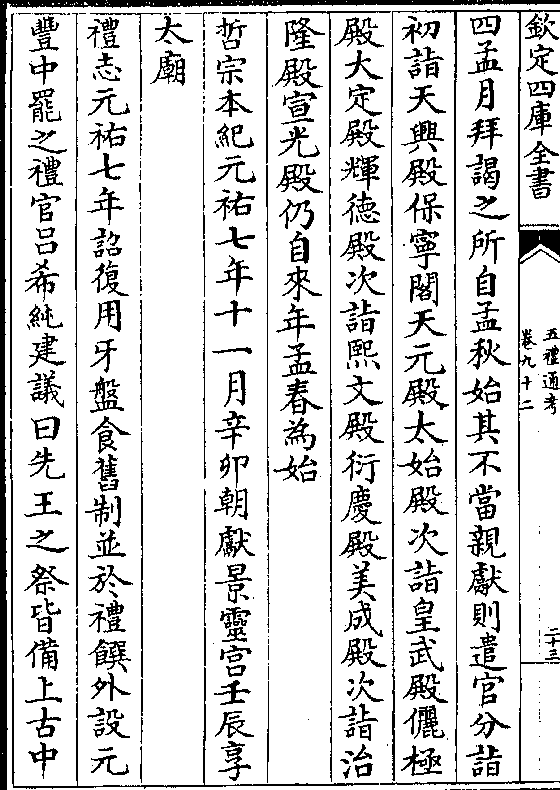 欽定四庫全書
五禮通考
卷九十二
二十三
四孟月拜謁之所自孟秋始其不當親獻則遣官分詣
初詣天興殿保寧閣天元殿太始殿次詣皇武殿儷極
殿大定殿輝德殿次詣熙文殿衍慶殿美成殿次詣治
隆殿宣光殿仍自來年孟春為始
哲宗本紀元祐七年十一月辛卯朝獻景靈宮壬辰享
太廟
禮志元祐七年詔復用牙盤食舊制並於禮饌外設元
豐中罷之禮官呂希純建議曰先王之祭皆備上古中